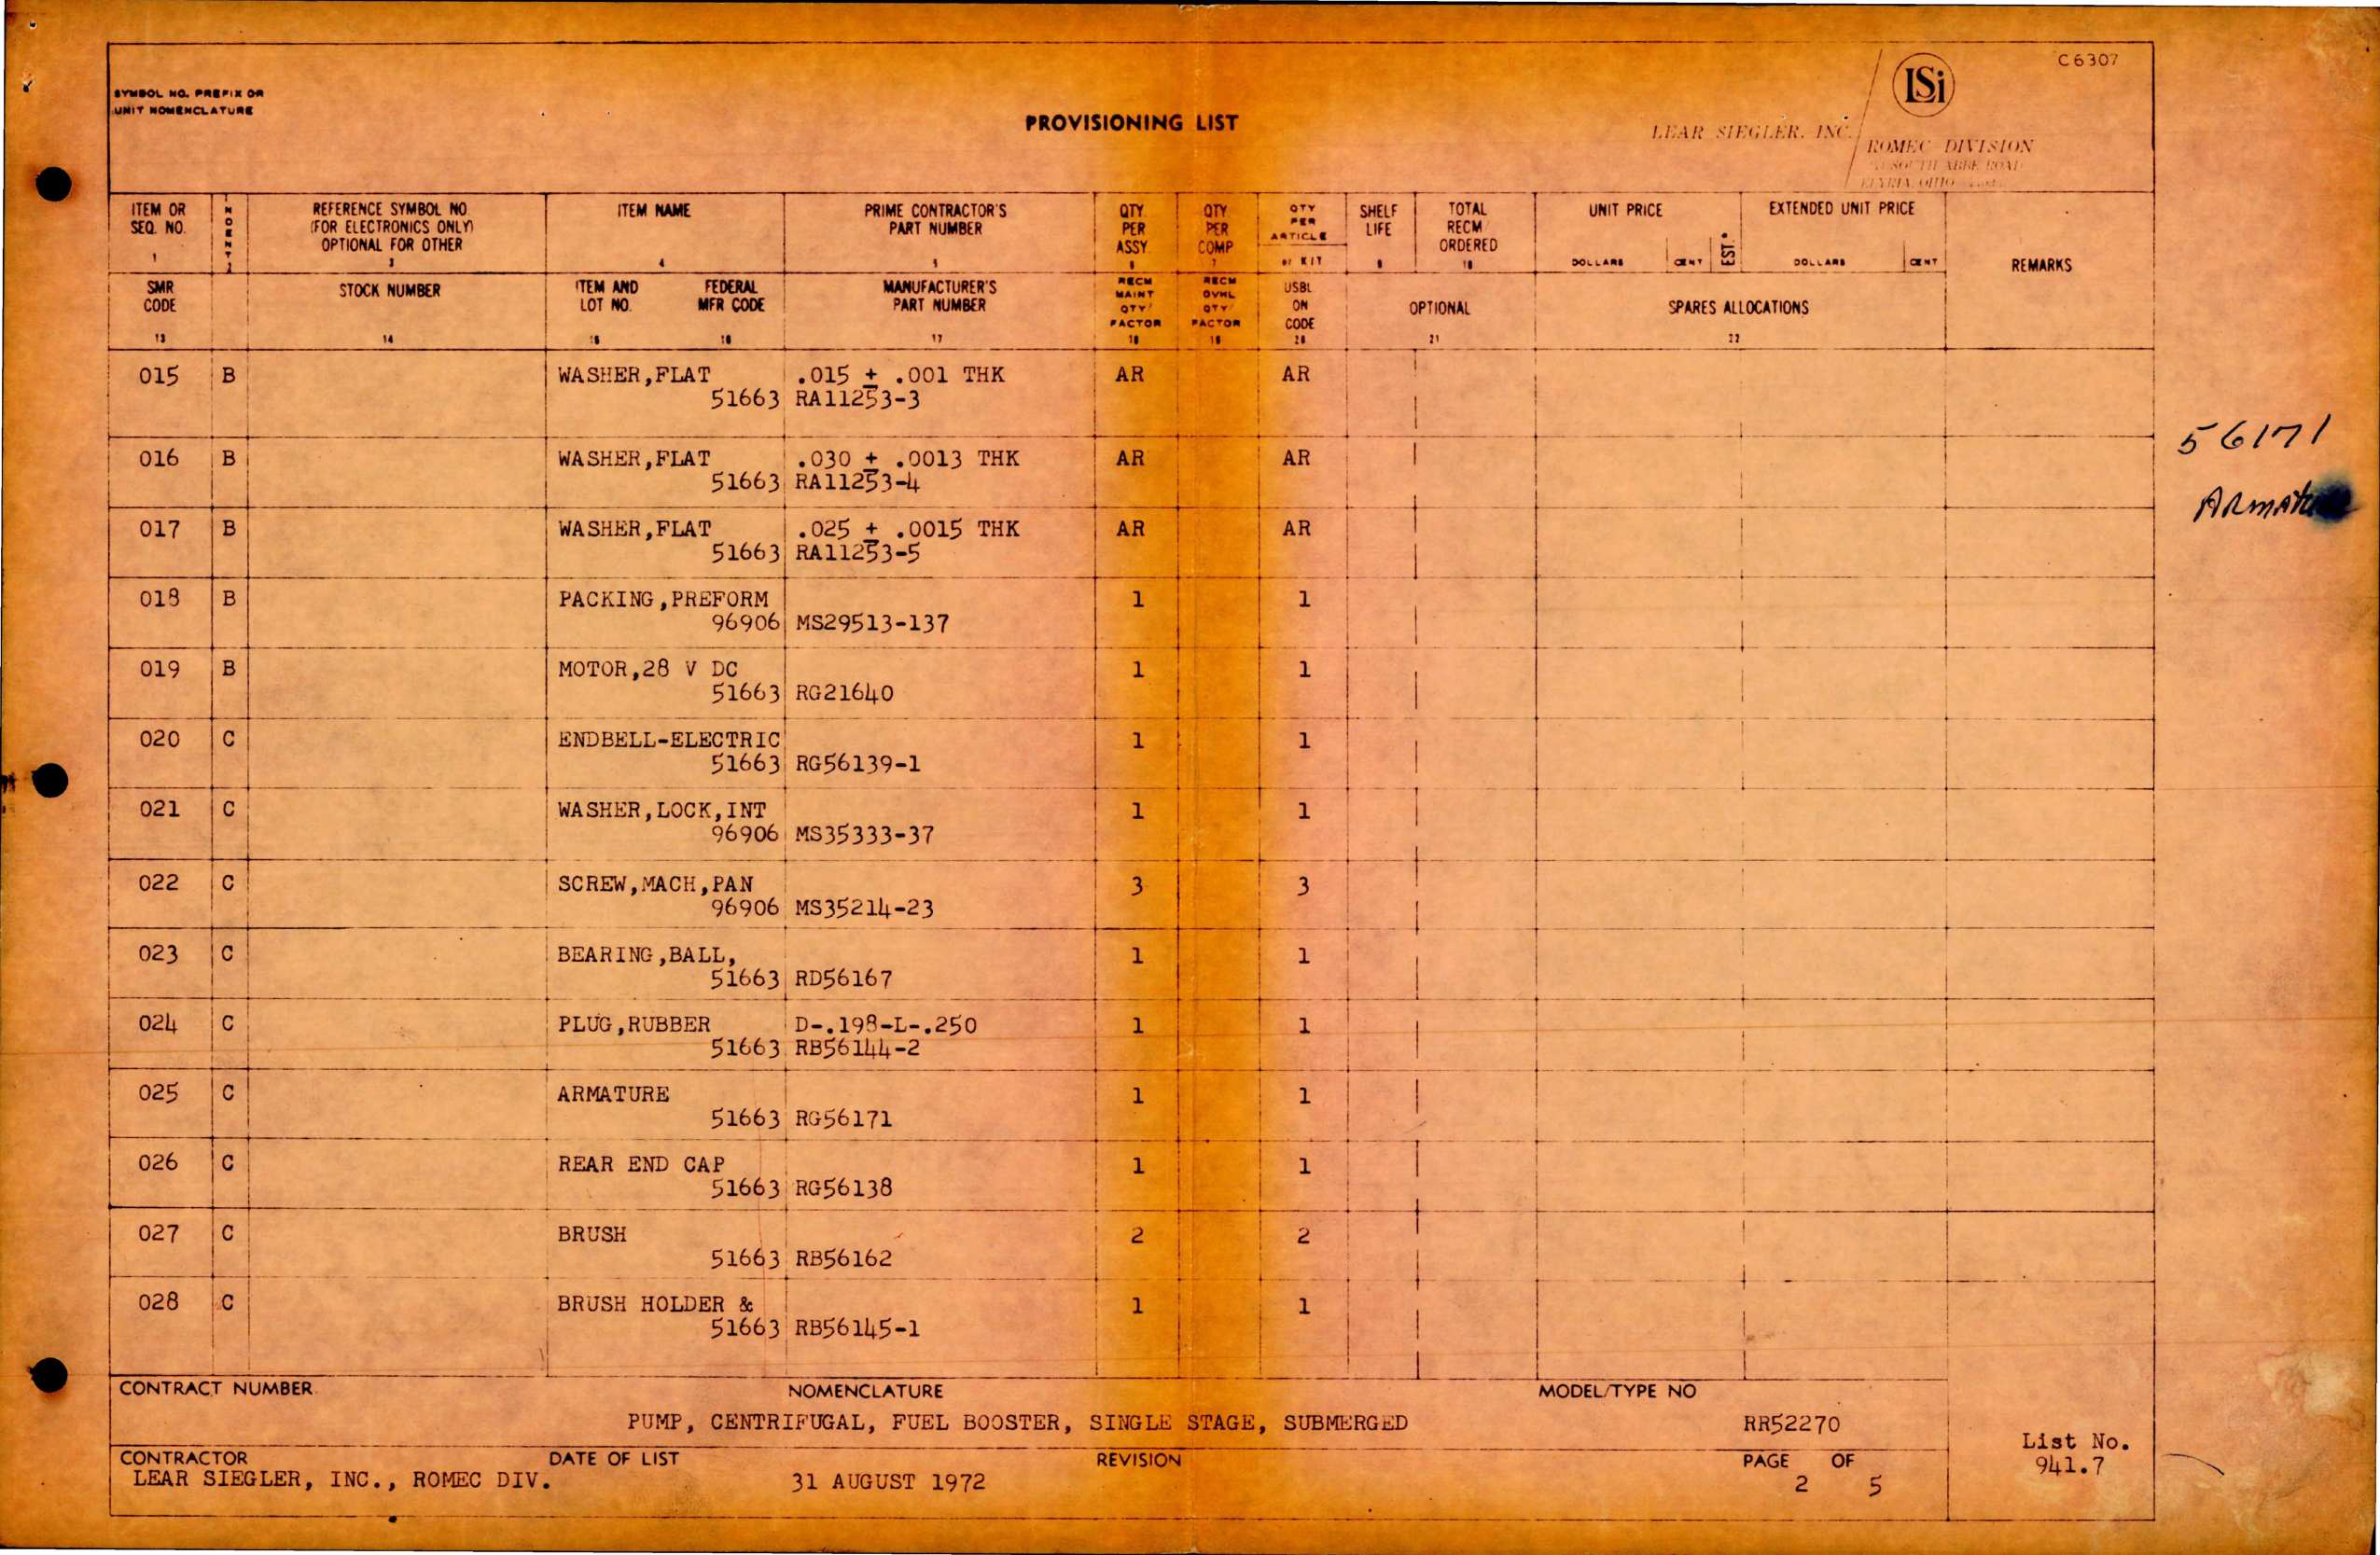 C6307
SYMBOL NO. PREFIX OR
UNIT NOMENCLATURE
PROVISIONING LIST
LSi
LEAR SIEGLER, INC.
ROMEC DIVISION
SOUTH ABBE ROAD
ELYRIA, OHIO
ITEM OR SEQ. NO. 1 INDENT 2 REFERENCE SYMBOL NO. (FOR ELECTRONICS ONLY) OPTIONAL FOR OTHER 3 ITEM NAME 4 PRIME CONTRACTOR'S PART NUMBER 5 QTY. PER ASSY. 6 QTY. PER COMP 7 QTY PER ARTICLE or KIT SHELF LIFE 9 TOTAL RECM ORDERED 10 UNIT PRICE DOLLARS CENT EST.* EXTENDED UNIT PRICE DOLLARS CENT REMARKS
SMR CODE 13 STOCK NUMBER 14 ITEM AND LOT NO. 15 FEDERAL MFR CODE 16 MANUFACTURER'S PART NUMBER 17 RECM MAINT QTY/ FACTOR 18 RECM OVHL QTY/ FACTOR 19 USBL ON CODE 20 OPTIONAL 21 SPARES ALLOCATIONS 22
015 B WASHER,FLAT .015 ± .001 THK AR AR
51663 RA11253-3
56171
016 B WASHER,FLAT .030 ± .0013 THK AR AR
51663 RA11253-4
Armature
017 B WASHER,FLAT .025 ± .0015 THK AR AR
51663 RA11253-5
018 B PACKING,PREFORM 1 1
96906 MS29513-137
019 B MOTOR,28 V DC 1 1
51663 RG21640
020 C ENDBELL-ELECTRIC 1 1
51663 RG56139-1
021 C WASHER,LOCK,INT 1 1
96906 MS35333-37
022 C SCREW,MACH,PAN 3 3
96906 MS35214-23
023 C BEARING,BALL, 1 1
51663 RD56167
024 C PLUG,RUBBER D-.198-L-.250 1 1
51663 RB56144-2
025 C ARMATURE 1 1
51663 RG56171
026 C REAR END CAP 1 1
51663 RG56138
027 C BRUSH 2 2
51663 RB56162
028 C BRUSH HOLDER & 1 1
51663 RB56145-1
CONTRACT NUMBER NOMENCLATURE MODEL/TYPE NO
PUMP, CENTRIFUGAL, FUEL BOOSTER, SINGLE STAGE, SUBMERGED RR52270
List No.
941.7
CONTRACTOR DATE OF LIST REVISION PAGE OF
LEAR SIEGLER, INC., ROMEC DIV. 31 AUGUST 1972 2 5